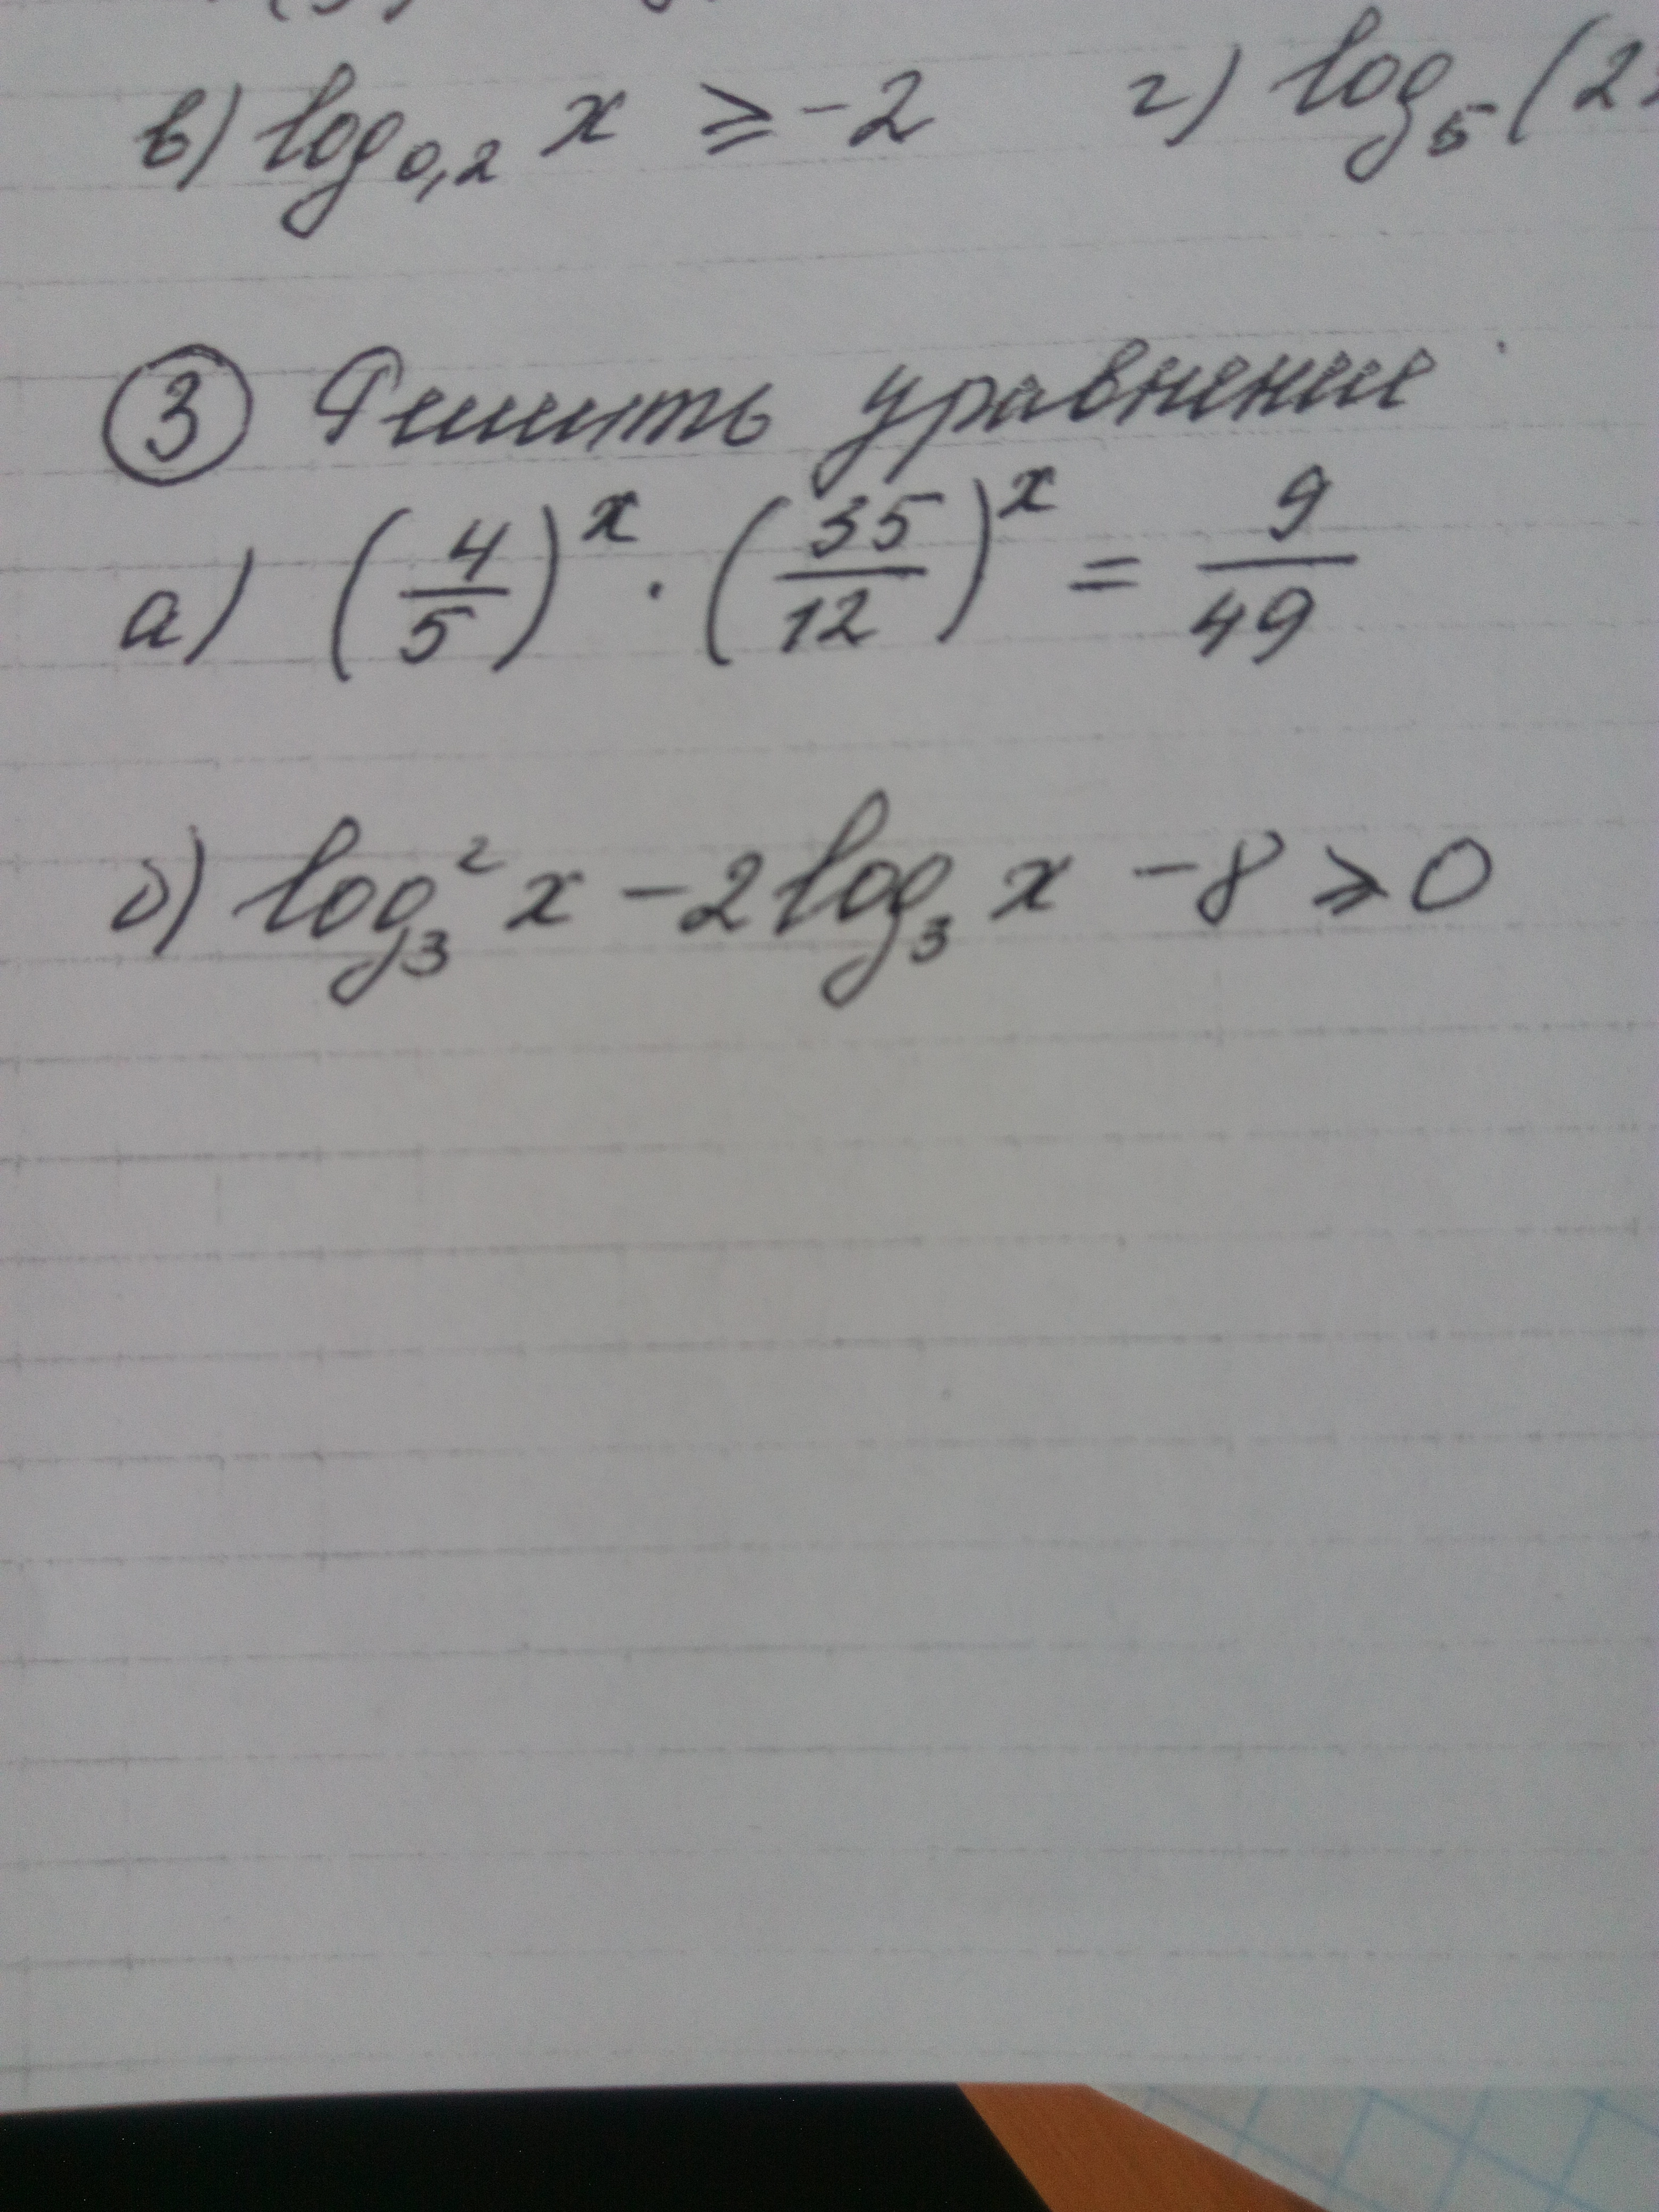 в) log₀,₂ x ≥ -2 г) log₅ (2
③ Решить уравнение
а) (4/5)ˣ · (35/12)ˣ = 9/49
б) log₃² x - 2 log₃ x - 8 ≥ 0